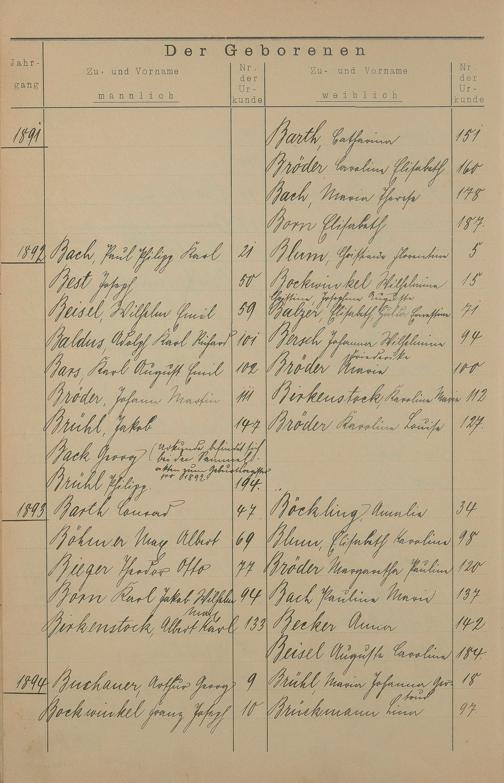 Der Geborenen
Jahr-
gang
Zu- und Vorname
männlich
Nr.
der
Ur-
kunde
Zu- und Vorname
weiblich
Nr.
der
Ur-
kunde
1891 Barth, Catharina 151
Bröder Caroline Elisabeth 160
Bach, Maria Therese 178
Born Elisabeth 187
1892 Bach, Paul Philipp Karl 21 Blum, Christiane Florentine 5
Best Joseph 50 Bockwinkel Wilhelmine 15
Josephine Auguste
Beisel, Wilhelm Emil 59 Balzer, Elisabeth Ernestine 71
Baldus, Adolf Karl Richard 101 Bersch Johanna Wilhelmine 94
Friederike
Bars Karl August Emil 102 Bröder Maria 100
Bröder, Johann Martin 111 Birkenstock Karoline Marie 112
Brühl, Jakob 147 Bröder Karoline Louise 127
Back Georg (Urkunde befindet sich
bei den Sammel-
akten zum Geburtsregister
1892
Brühl Philipp 194
1893 Barth Conrad 47 Böckling Amalie 34
Böhmer Max Albert 69 Blum, Elisabeth Karoline 98
Bieger Theodor Otto 77 Bröder Margaretha Pauline 120
Born Karl Jakob Wilhelm 94 Bach Pauline Marie 137
Max
Birkenstock, Albert Karl 133 Becker Anna 142
Beisel Auguste Caroline 184
1894 Buchauer, Arthur Georg 9 Brühl, Maria Johanna Ger- 18
trud
Bockwinkel Franz Joseph 10 Brückmann Lina 97